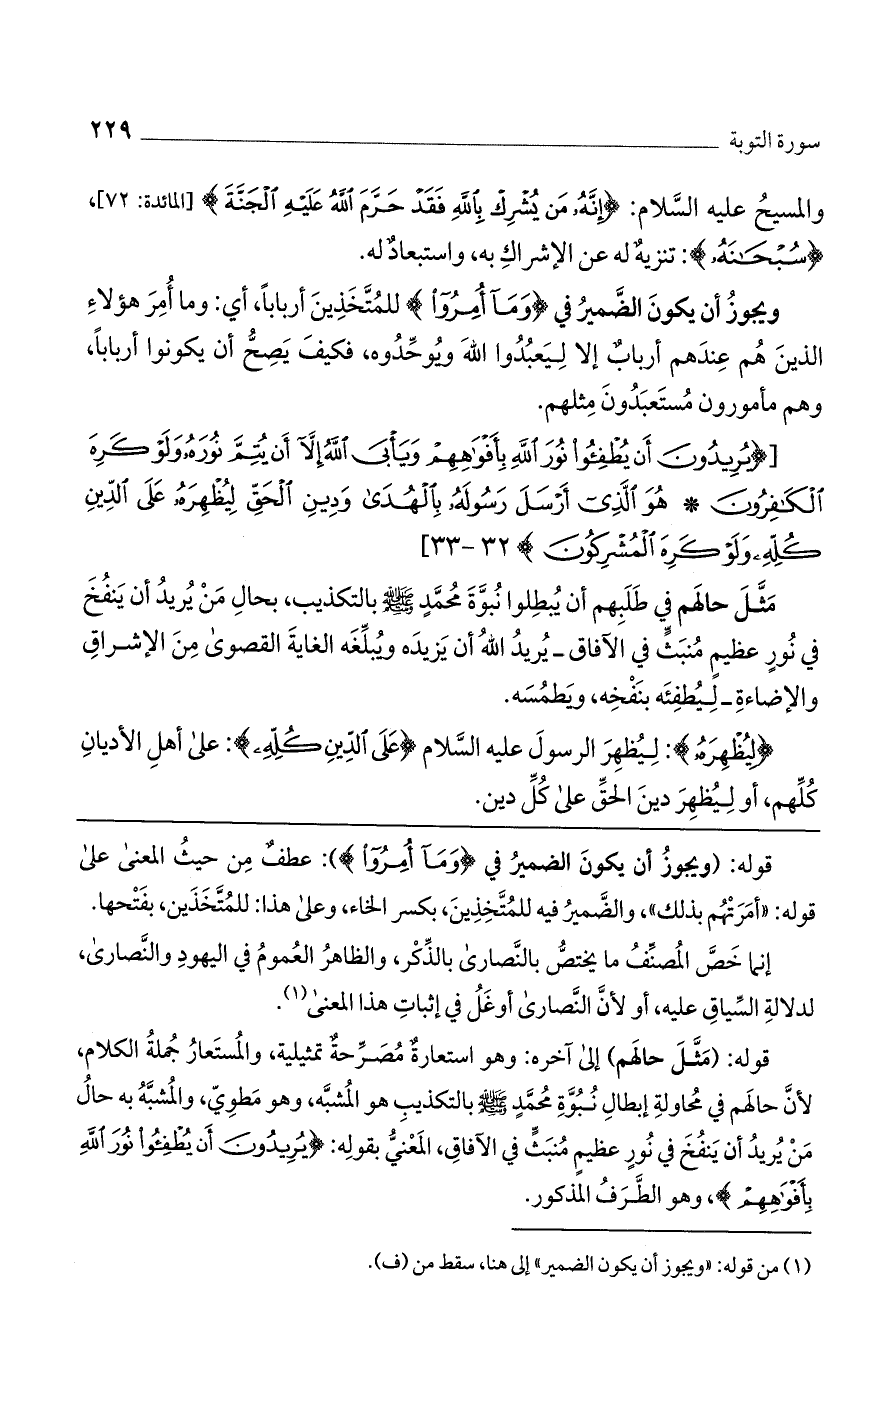 سورة التوبة ٢٢٩
والمسيحُ عليه السَّلام: ﴿إِنَّهُۥ مَن يُشْرِكْ بِٱللَّهِ فَقَدْ حَرَّمَ ٱللَّهُ عَلَيْهِ ٱلْجَنَّةَ﴾ [المائدة: ٧٢]،
﴿سُبْحَٰنَهُۥ﴾: تنزيهٌ له عن الإشراكِ به، واستبعادٌ له.
ويجوزُ أن يكونَ الضَّميرُ في ﴿وَمَآ أُمِرُوٓا۟﴾ للمُتَّخَذِينَ أرباباً، أي: وما أُمِرَ هؤلاءِ
الذينَ هُم عِندَهم أربابٌ إلا لِـيَعبُدُوا اللهَ ويُوحِّدُوه، فكيفَ يَصِحُّ أن يكونوا أرباباً،
وهم مأمورون مُستَعبَدُونَ مِثلهم.
[﴿يُرِيدُونَ أَن يُطْفِـُٔوا۟ نُورَ ٱللَّهِ بِأَفْوَٰهِهِمْ وَيَأْبَى ٱللَّهُ إِلَّآ أَن يُتِمَّ نُورَهُۥ وَلَوْ كَرِهَ
ٱلْكَٰفِرُونَ * هُوَ ٱلَّذِىٓ أَرْسَلَ رَسُولَهُۥ بِٱلْهُدَىٰ وَدِينِ ٱلْحَقِّ لِيُظْهِرَهُۥ عَلَى ٱلدِّينِ
كُلِّهِۦ وَلَوْ كَرِهَ ٱلْمُشْرِكُونَ﴾ ٣٢ -٣٣]
مَثَّلَ حالَهم في طَلَبِهم أن يُبطِلوا نُبوَّةَ مُحمَّدٍ ﷺ بالتكذيب، بحالِ مَنْ يُريدُ أن يَنفُخَ
في نُورٍ عظيمٍ مُنبَثٍّ في الآفاق ـ يُريدُ اللهُ أن يَزيدَه ويُبلِّغَه الغايةَ القصوىٰ مِنَ الإشـراقِ
والإضاءةِ ـ لِـيُطفِئَه بنَفْخِه، ويَطمُسَه.
﴿لِيُظْهِرَهُۥ﴾: لِـيُظهِرَ الرسولَ عليه السَّلام ﴿عَلَى ٱلدِّينِ كُلِّهِۦ﴾: علىٰ أهلِ الأديانِ
كُلِّهم، أو لِـيُظهِرَ دينَ الحقِّ علىٰ كُلِّ دين.
قوله: (ويجوزُ أن يكونَ الضميرُ في ﴿وَمَآ أُمِرُوٓا۟﴾): عطفٌ مِن حيثُ المعنىٰ علىٰ
قوله: «أمَرَتْهُم بذلك»، والضَّميرُ فيه للمُتَّخِذِينَ، بكسر الخاء، وعلىٰ هذا: للمُتَّخَذَين، بفَتْحها.
إنما خَصَّ المُصنِّفُ ما يختصُّ بالنَّصارىٰ بالذِّكْر، والظاهرُ العُمومُ في اليهودِ والنَّصارىٰ،
لدلالةِ السِّياقِ عليه، أو لأنَّ النَّصارىٰ أوغَلُ في إثباتِ هذا المعنىٰ(١).
قوله: (مَثَّـلَ حالَهم) إلىٰ آخره: وهو استعارةٌ مُصَـرِّحةٌ تمثيلية، والمُستَعارُ جُملةُ الكلام،
لأنَّ حالَهم في مُحاولةِ إبطالِ نُـبُوَّةِ مُحمَّدٍ ﷺ بالتكذيبِ هو المُشبَّه، وهو مَطوِيّ، والمُشبَّهُ به حالُ
مَنْ يُريدُ أن يَنفُخَ في نُورٍ عظيمٍ مُنبَثٍّ في الآفاقِ، المَعْنيُّ بقولِه: ﴿يُرِيدُونَ أَن يُطْفِـُٔوا۟ نُورَ ٱللَّهِ
بِأَفْوَٰهِهِمْ﴾، وهو الطَّـرَفُ المذكور.
(١) من قوله: «ويجوز أن يكون الضمير» إلى هنا، سقط من (ف).